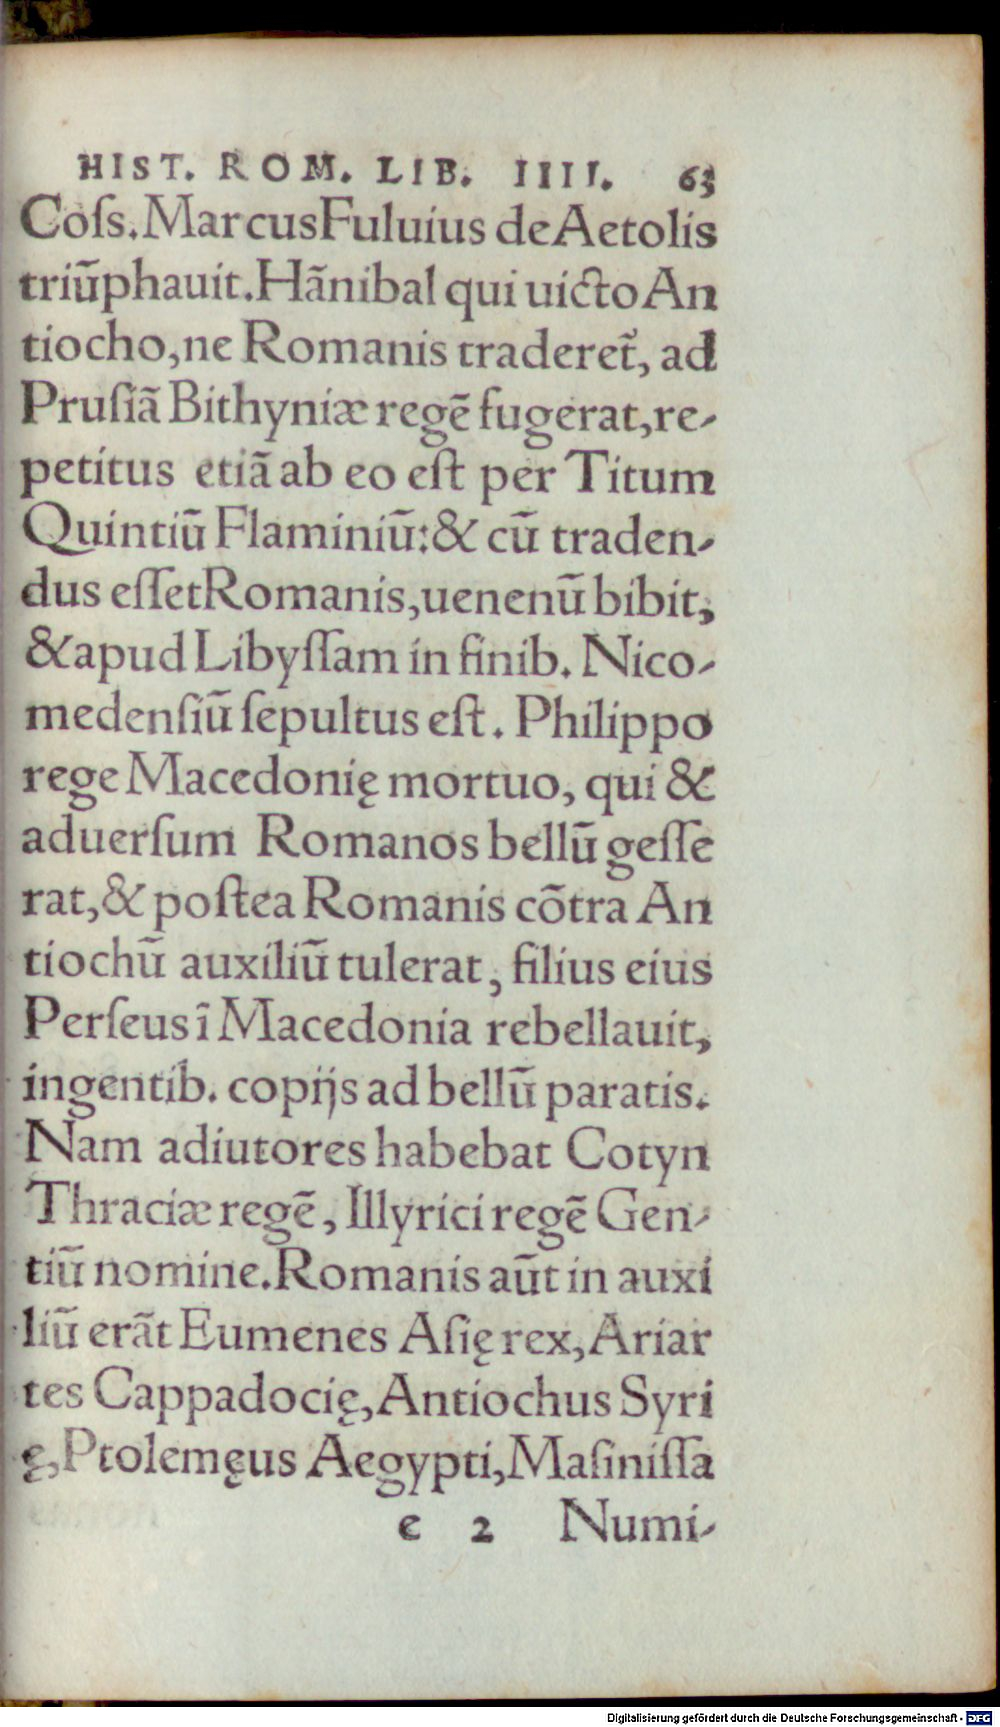 HIST. ROM. LIB. IIII. 63
Coſs. Marcus Fuluius de Aetolis
triūphauit. Hānibal qui uicto An
tiocho, ne Romanis traderet᷑, ad
Pruſiā Bithyniæ regē fugerat, re-
petitus etiā ab eo eſt per Titum
Quintiū Flaminiū: & cū traden-
dus eſſet Romanis, uenenū bibit,
& apud Libyſſam in finib. Nico-
medenſiū ſepultus eſt. Philippo
rege Macedonię mortuo, qui &
aduerſum Romanos bellū geſſe
rat, & poſtea Romanis cōtra An
tiochū auxiliū tulerat, filius eius
Perſeus ī Macedonia rebellauit,
ingentib. copijs ad bellū paratis.
Nam adiutores habebat Cotyn
Thraciæ regē, Illyrici regē Gen-
tiū nomine. Romanis aūt in auxi
liū erāt Eumenes Aſię rex, Ariar
tes Cappadocię, Antiochus Syri
ę, Ptolemęus Aegypti, Maſiniſſa
e 2 Numi-
Digitalisierung gefördert durch die Deutsche Forschungsgemeinschaft - DFG